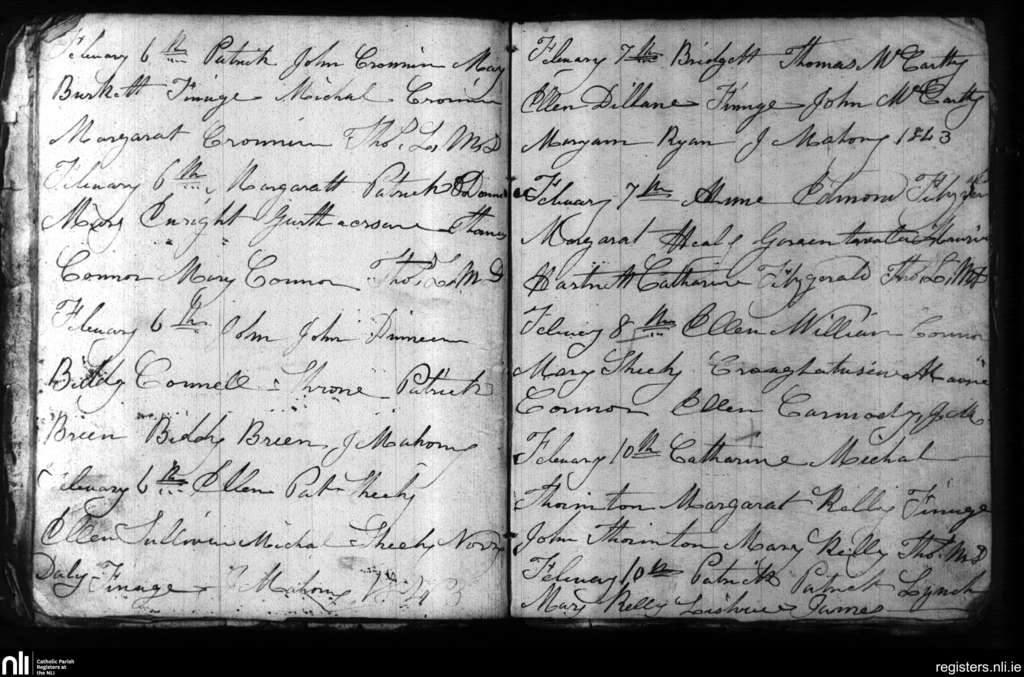 February 6th Patrick John Cronnin Mary
Burkett Finuge Michal Cronnin
Margarat Cronnin Thos. L. McD
February 6th Margaratt Patrick O Donnel
Mary Enright
Connor Mary Connor Thos. L. McD
February 6th John John Dinneen
Biddy Connell Shrone Patrick
Brien Biddy Brien J Mahony
February 6th Ellen Pat Sheehy
Ellen Sullivan Michal Sheehy Norry
Daly Finuge J Mahony 1843
February 7th Bridgett Thomas McCarthy
Ellen Dillane Finuge John McCarthy
Maryann Ryan J Mahony 1843
February 7th Anne Edmond
Margarat Healy
Hartnett Catharine Fitzgerald Thos. L. McD
February 8th Ellen William Connor
Mary Sheehy
Connor Ellen Carmody
February 10th Catharine Michal
Thornton Margarat Reilly Finuge
John Thornton Mary Reilly Thos. McD
February 10th Patrick Patrick Lynch
Mary Reilly James
nli
Catholic Parish
Registers at
the NLI
registers.nli.ie